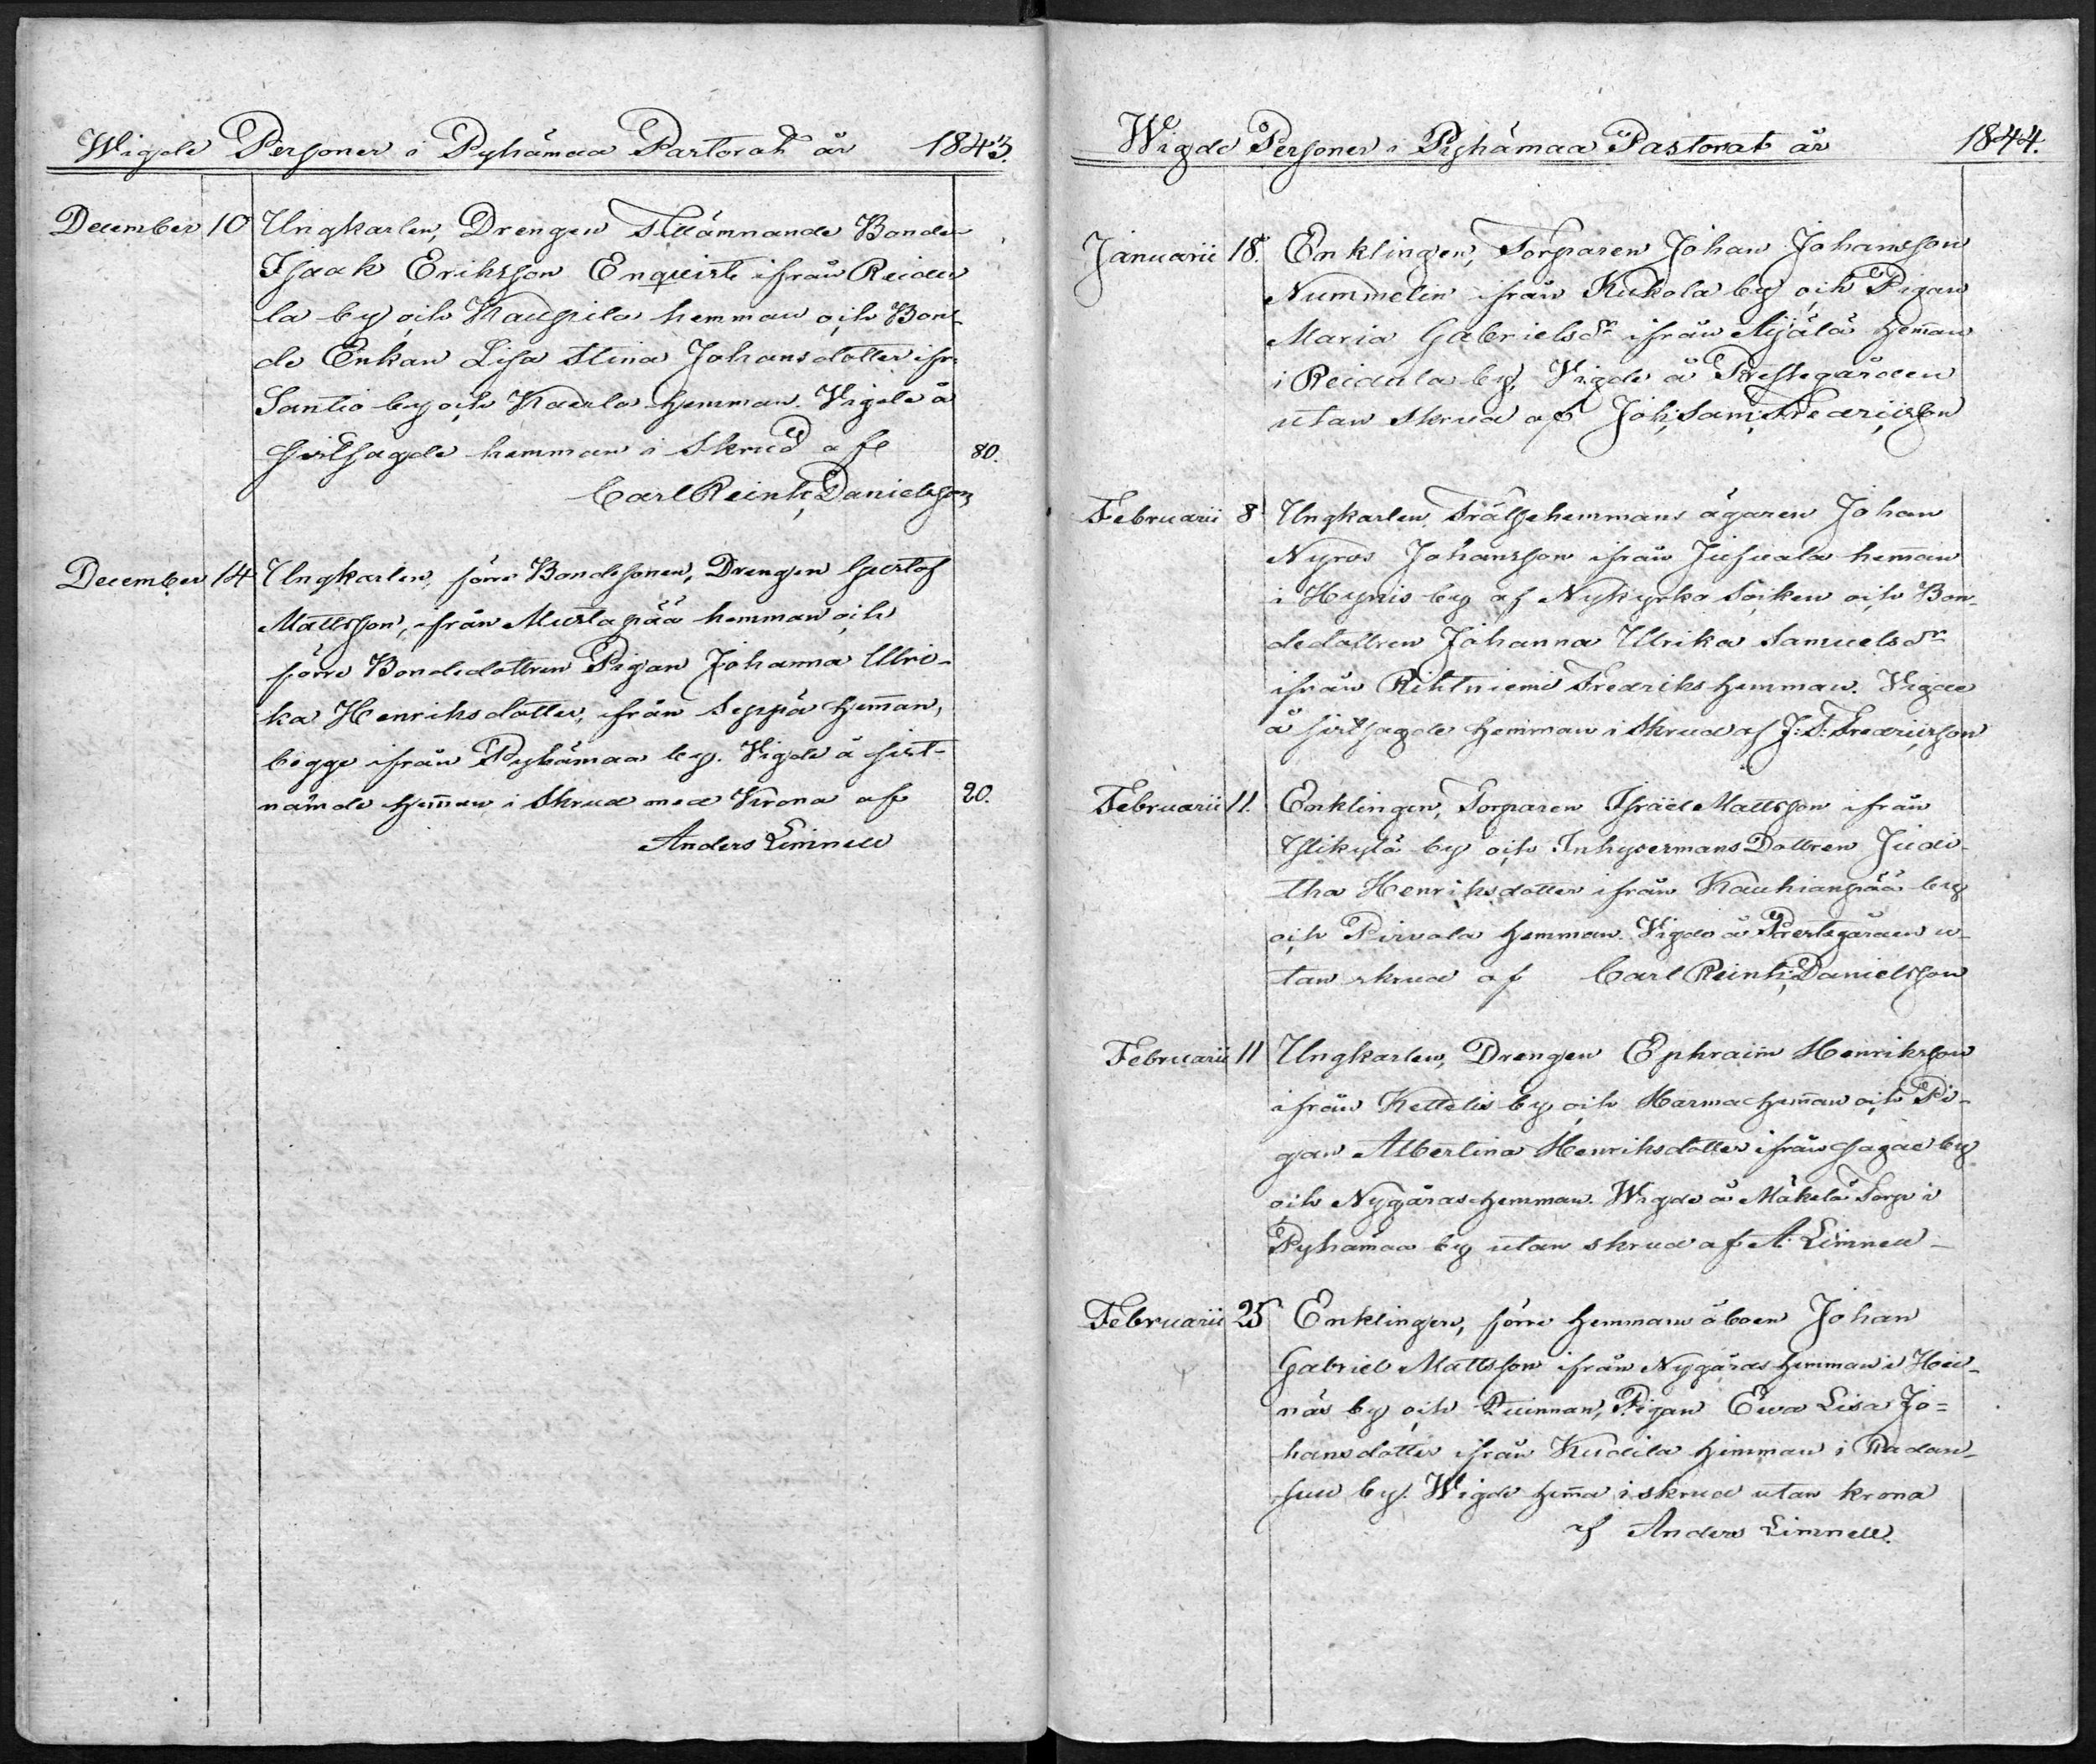 Wigde Personer i Pyhämaa Pastorat år 1843.
December 10 Ungkarlen, Drengen tillämnande Bonde
Isaak Eriksson Enqvist ifrån Reidu
la by och Kaupila hemman och Bon-
de Enkan Lisa Stina Johansdotter ifr:
Santio by och Kaerla hemman. Vigde å
sistsagde hemman i Skrud af 80.
Carl Reinh: Danielsson
December 14 Ungkarlen, förre Bondesonen, Drengen Gustaf
Mattsson, ifrån Mustapää hemman och
förre Bondedottren Pigan Johanna Ulri-
ka Henriksdotter, ifrån Seppä hemman,
bägge ifrån Pyhämaa by. Vigde å sist-
nämde hemman i Skrud med Krona af 20.
Anders Limnell
Wigde Personer i Pyhämaa Pastorat år 1844.
Januarii 18. Enklingen, Torparen Johan Johansson
Nummelin ifrån Kukola by och Pigan
Maria Gabrielsdr ifrån Äijälä hemman
i Reidula by, Vigde å Prestegården
utan skrud af Joh: Sam: Fredricsson
Februarii 8 Ungkarlen Frälsehemmans ägaren Johan
Nyros Johansson ifrån Jusuala hemman
i Hynis by af Nykyrko Socken och Bon-
dedottren Johanna Ulrika Samuelsdr
ifrån Rihtniemi Fredriks hemman. Vigde
å sistsagde hemman i Skrud af J: S: Fredricsson
Februarii 11. Enklingen, Torparen Israël Mattsson ifrån
Ylikylä by och Inhysesmans Dottren Judi-
tha Henriksdotter ifrån Kauhianpää by
och Pirvola hemman. Vigde å Prestegården u-
tan skrud af Carl Reinh: Danielsson
Februarii 11 Ungkarlen, Drengen Ephraim Henriksson
ifrån Kettelis by och Harma hemman och Pi-
gan Albertina Henriksdotter ifrån sagde by
och Nygåras hemman. Wigde å Mäkelä Torp i
Pyhämaa by utan skrud af A. Limnell
Februarii 25 Enklingen, förre hemmans åboen Johan
Gabriel Mattsson ifrån Nygåras hemman i Hei-
näs by och Quinnan, Pigan Ewa Lisa Jo=
hansdotter ifrån Kudila hemman i Radan-
suu by. Wigde hemma i skrud utan krona
af Anders Limnell.